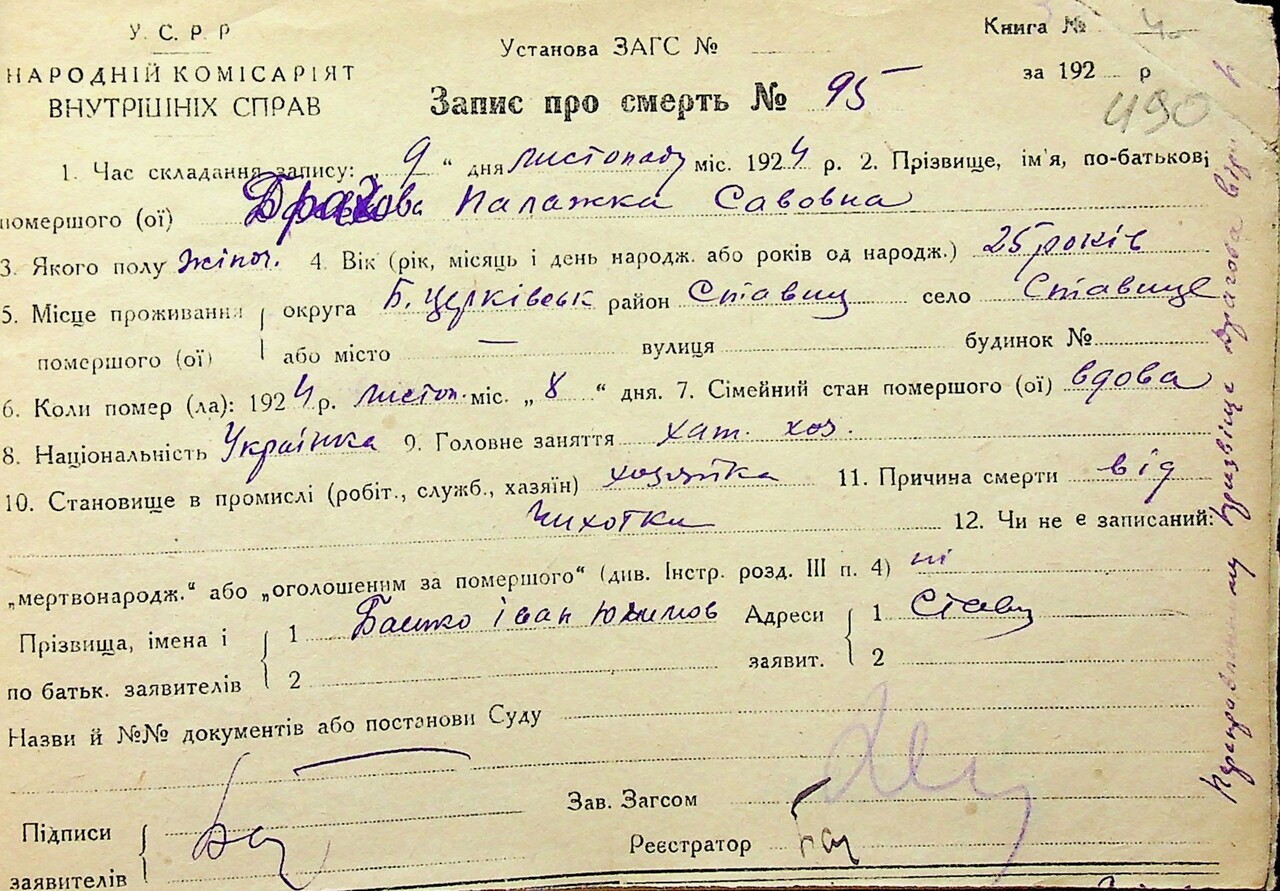 У. С. Р. Р
НАРОДНІЙ КОМІСАРІЯТ
ВНУТРІШНІХ СПРАВ
Установа ЗАГС №
Книга №
за 192 р
490
Запис про смерть № 95
1. Час складання запису: 9 “ дня листопаду міс. 1924 р. 2. Прізвище, ім'я, по-батькові
помершого (ої) Драгова Палажка Савовна
3. Якого полу жіноч. 4. Вік (рік, місяць і день народж. або років од народж.) 25 років
5. Місце проживання помершого (ої) округа Б. Церківськ район Ставищ село Ставище
або місто — вулиця будинок №
6. Коли помер (ла): 1924 р. листоп. міс. „ 8 “ дня. 7. Сімейний стан помершого (ої) вдова
8. Національність Українка 9. Головне заняття хат. хоз.
10. Становище в промислі (робіт., служб., хазяїн) хозяйка 11. Причина смерти від
чихотки 12. Чи не є записаний:
„мертвонародж.“ або „оголошеним за помершого“ (див. Інстр. розд. III п. 4) ні
Прізвища, імена і по батьк. заявителів 1 Іван Юхимов Адреси заявит. 1 Ставищ
2 2
Назви й №№ документів або постанови Суду
Зав. Загсом
Підписи заявителів
Реєстратор
призвіще Драгова